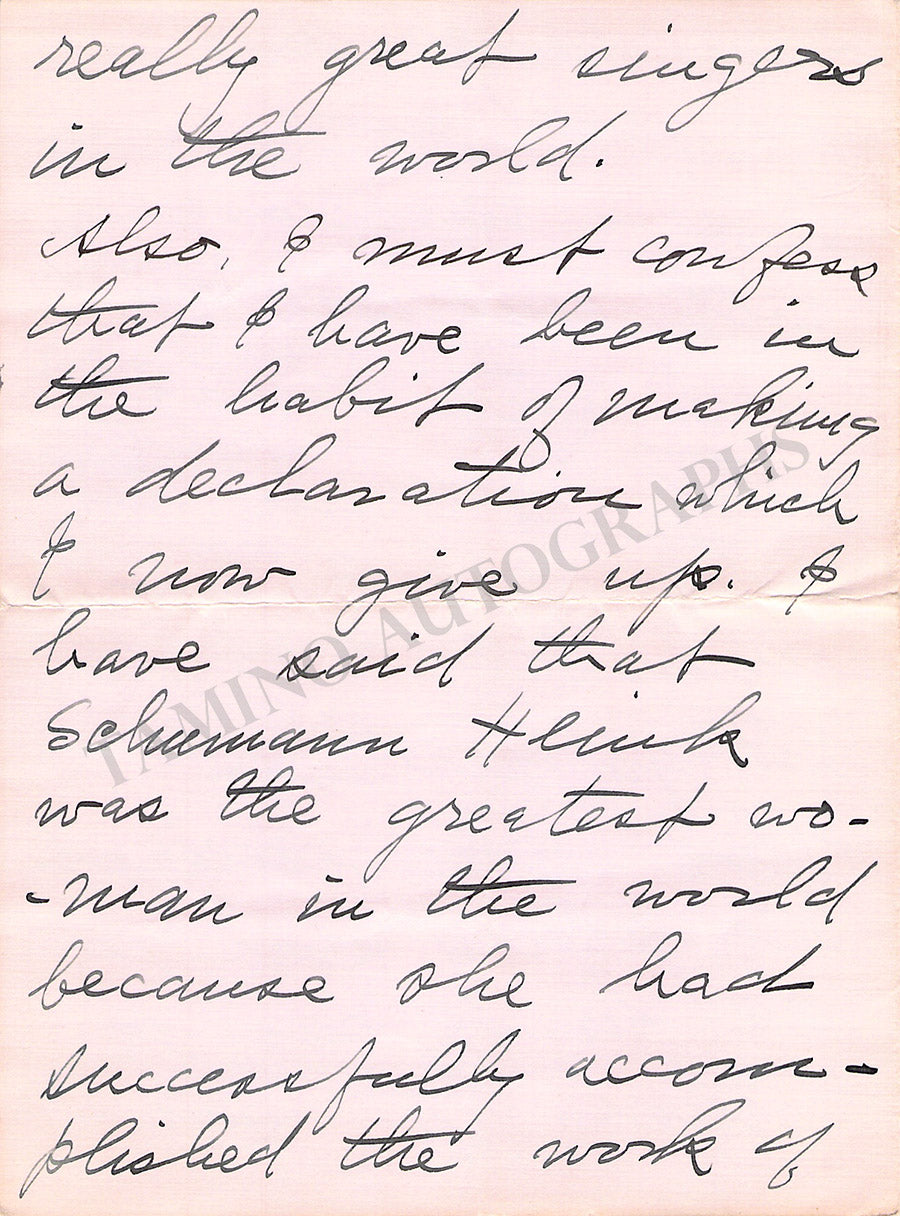 really great singers
in the world.
Also, I must confess
that I have been in
the habit of making
a declaration which
I now give up. I
have said that
Schumann Heink
was the greatest wo-
-man in the world
because she had
successfully accom-
plished the work of
TAMINO AUTOGRAPHS